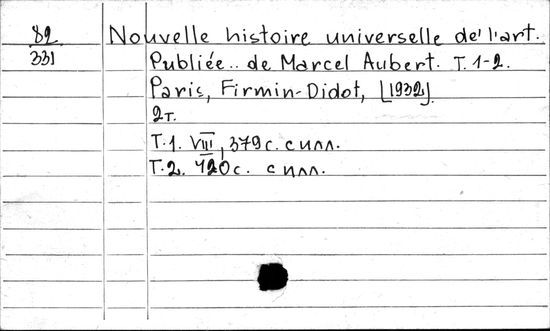 82
331
Nouvelle histoire universelle de l'art.
Publiée .. de Marcel Aubert. T. 1-2.
Paris, Firmin-Didot, [1932].
2т.
Т.1. VIII, 379с. с илл.
Т.2. 420с. с илл.